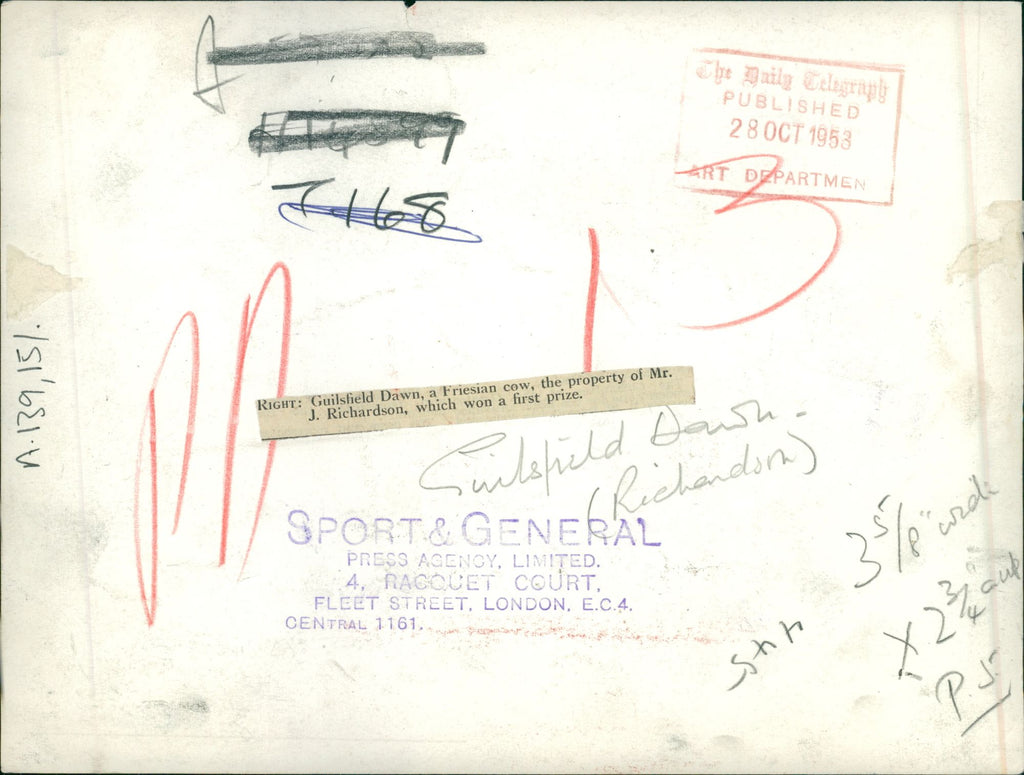 The Daily Telegraph
PUBLISHED
28 OCT 1953
ART DEPARTMEN
7168
A.139,151.
RIGHT: Guilsfield Dawn, a Friesian cow, the property of Mr.
J. Richardson, which won a first prize.
Guilsfield Dawn.
(Richardson)
SPORT & GENERAL
PRESS AGENCY, LIMITED.
4, RACQUET COURT,
FLEET STREET, LONDON, E.C.4.
CENTRAL 1161.
3 5/8" wide
X 2 3/4"
P.5